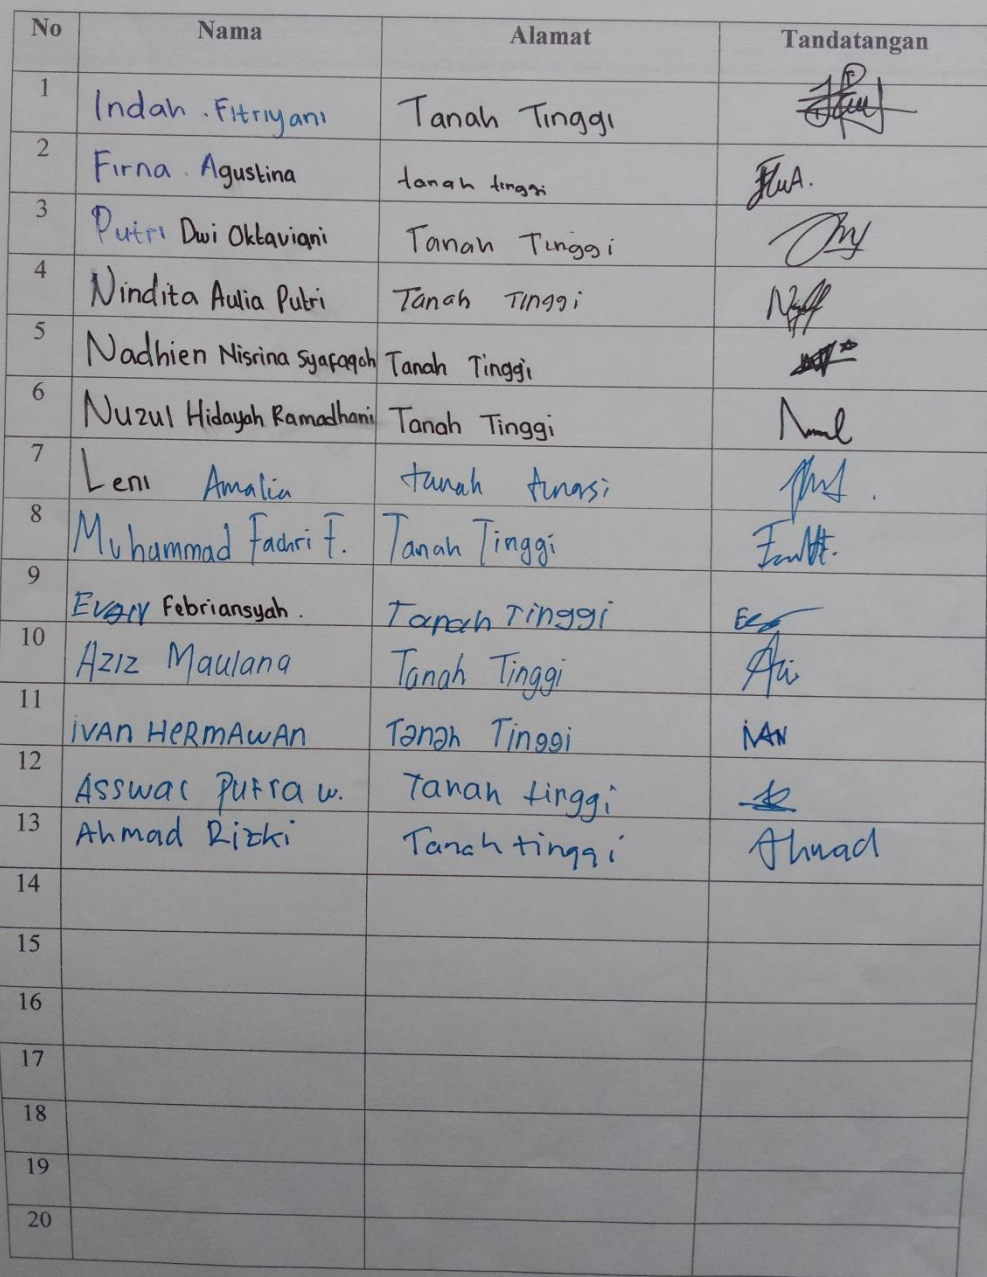 No Nama Alamat Tandatangan
1 Indah . Fitriyani Tanah Tinggi
2 Firna . Agustina tanah tinggi
3 Putri Dwi Oktaviani Tanah Tinggi
4 Nindita Aulia Putri Tanah Tinggi
5 Nadhien Nisrina Syafaqoh Tanah Tinggi
6 Nuzul Hidayah Ramadhani Tanah Tinggi
7 Leni Amalia tanah
8 Muhammad Fachri F. Tanah Tinggi
9 Febriansyah . Tanah Tinggi
10 Aziz Maulana Tanah Tinggi
11 iVAn HeRmAwAn Tanah Tinggi IVAN
12 Putra w. Tanah tinggi
13 Ahmad Rizki Tanah tinggi Ahmad
14
15
16
17
18
19
20